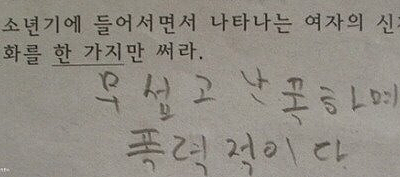 소년기에 들어서면서 나타나는 여자의 신
화를 한 가지만 써라.
무섭고 난폭하며
폭력적이다